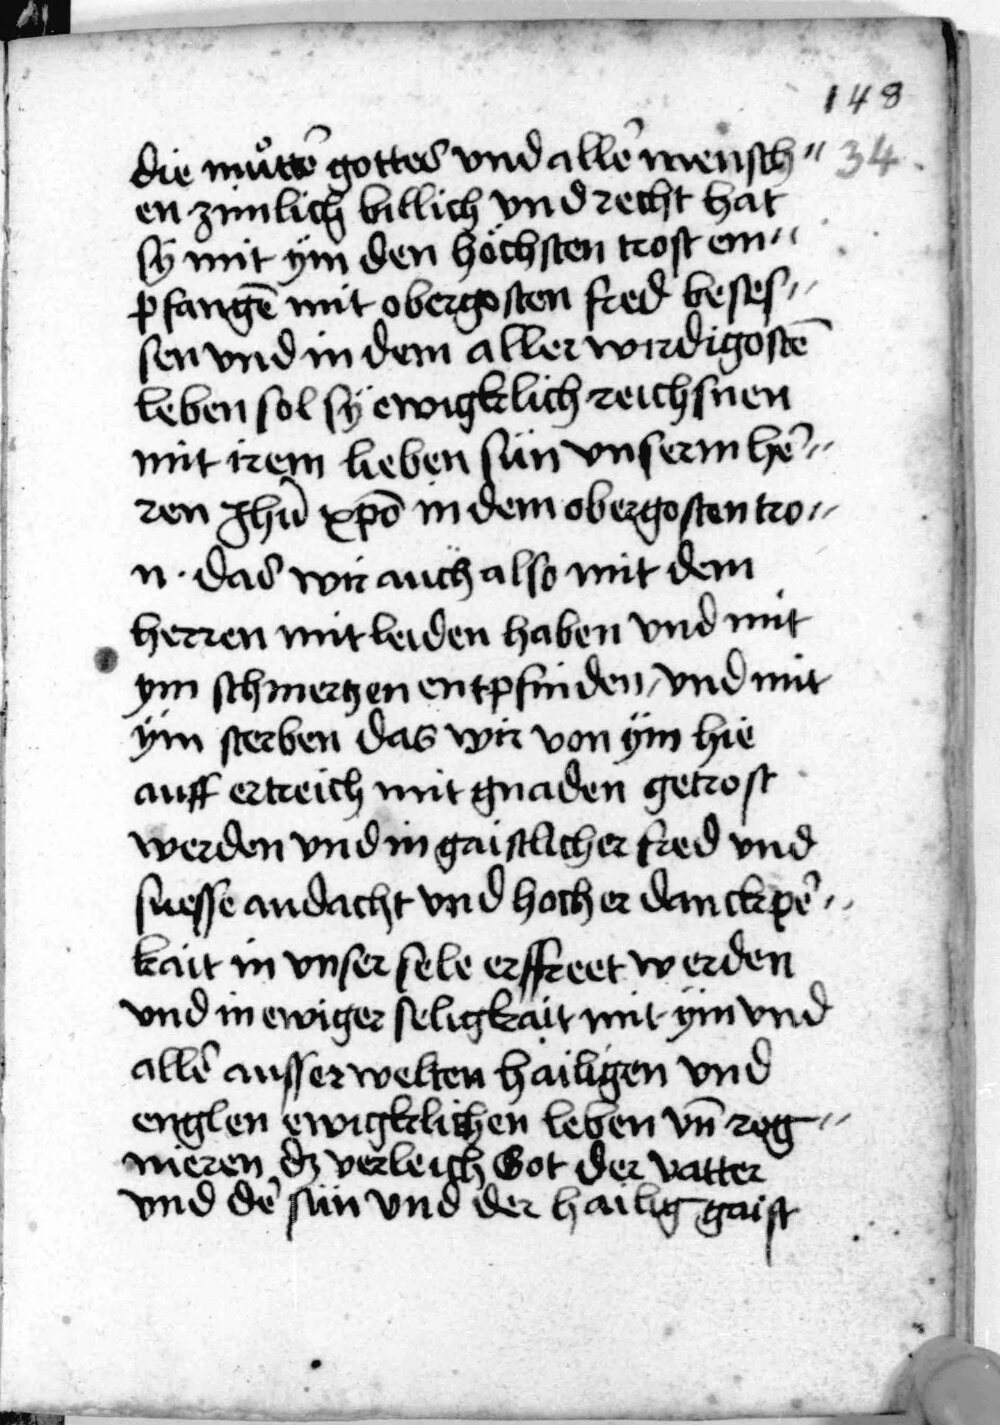 148
34
die můttē gottes vnd allē mensch〃
en zimlich billich vnd recht hat
sÿ mit ÿm den höchsten trost em〃
pfangē mit obergosten fred beses〃
sen vnd in dem aller wirdigostē
leben sol sÿ ewigklich reichsnen
mit irem lieben sün vnserm hē〃
ren Jhū xpō in dem obergosten tro〃
n. das wir auch also mit dem
herren mit leiden haben vnd mit
ym schmertzen entpfinden / vnd mit
ÿm sterben das wir von ÿm hie
auff ertreich mit gnaden getrost
werden vnd in gaistlicher fred vnd
suesse andacht vnd hocher danckpē〃
kait in vnser sele erffreet werden
vnd in ewiger seligkait mit ÿm vnd
allē ausserwelten hailigen vnd
englen ewigklichen leben vn̄ reg〃
nieren dz verleich Got der vatter
vnd dē sün vnd der hailig gaist